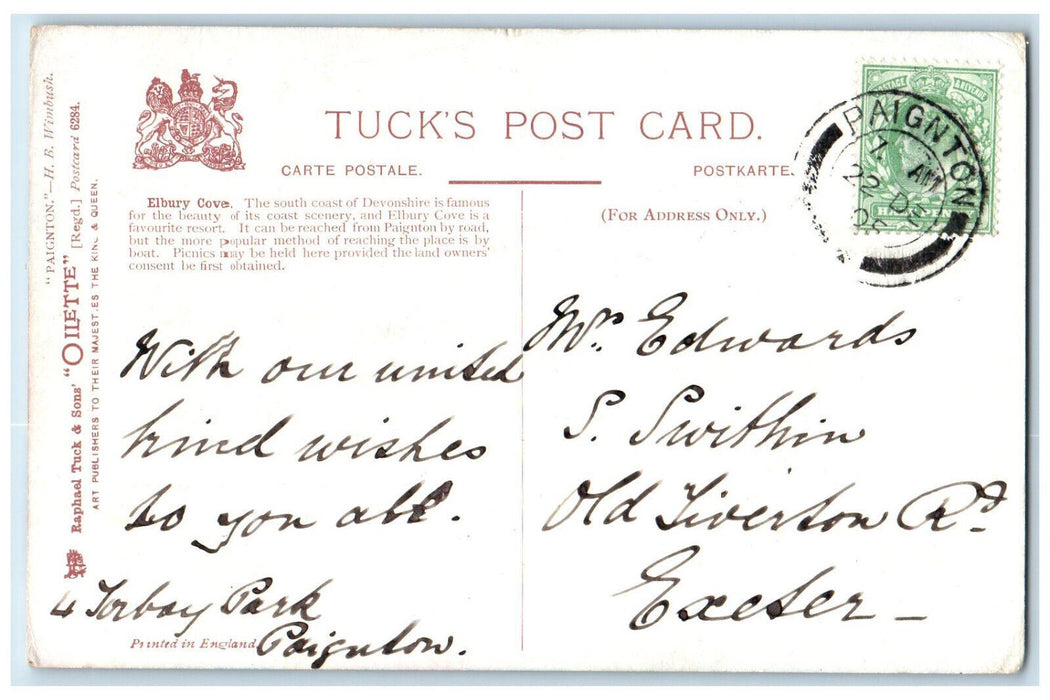 TUCK'S POST CARD.
CARTE POSTALE.
POSTKARTE.
Elbury Cove. The south coast of Devonshire is famous
for the beauty of its coast scenery, and Elbury Cove is a
favourite resort. It can be reached from Paignton by road,
but the more popular method of reaching the place is by
boat. Picnics may be held here provided the land owners'
consent be first obtained.
(FOR ADDRESS ONLY.)
"PAIGNTON."—H. B. Wimbush.
Raphael Tuck & Sons' "OILETTE" [Regd.] Postcard 6284.
ART PUBLISHERS TO THEIR MAJESTIES THE KING & QUEEN.
PAIGNTON
7 AM
22 DE
With our united
kind wishes
to you all.
4 Torbay Park
Paignton.
Printed in England
Mrs Edwards
S. Swithin
Old Tiverton Rd
Exeter